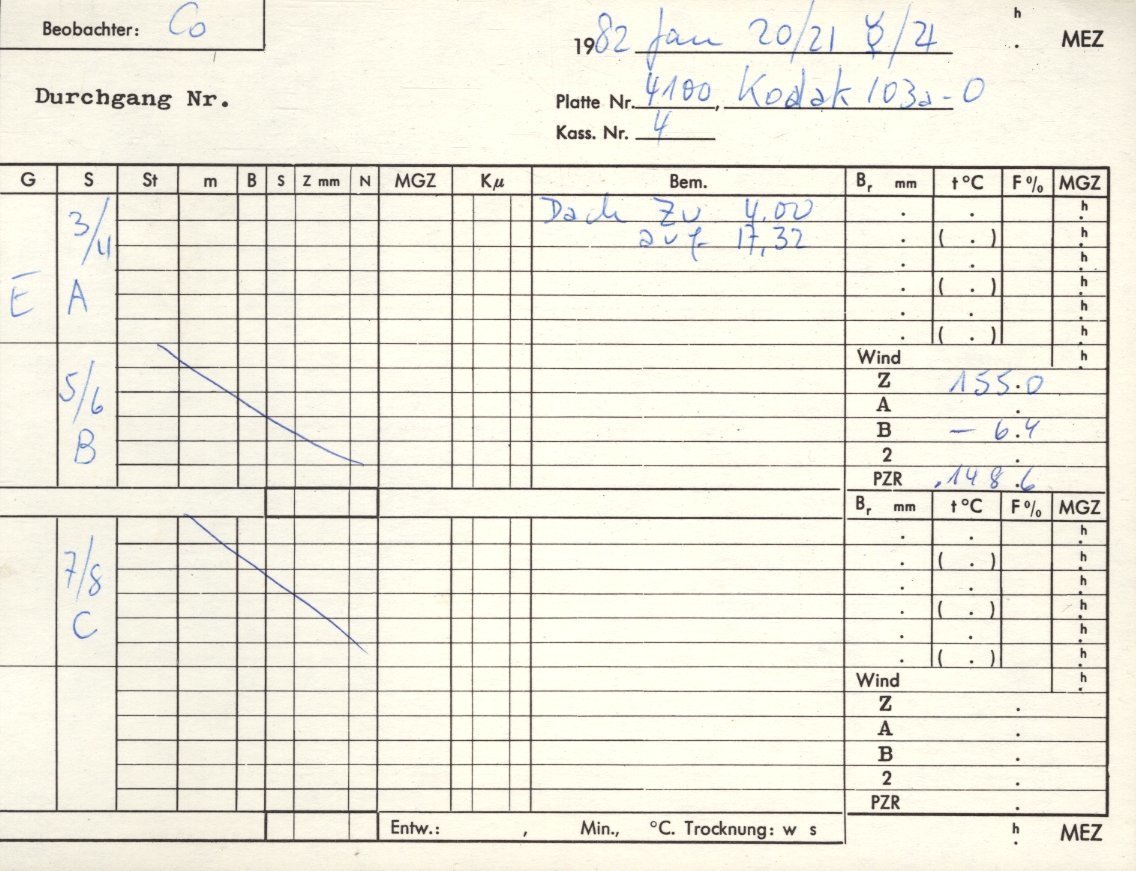 Beobachter: Co
h
1982 Jan 20/21 ☿/♃ . MEZ
Durchgang Nr.
Platte Nr. 4100, Kodak 103a-O
Kass. Nr. 4
G S St m B S Z mm N MGZ Kμ Bem. Br mm t °C F % MGZ
3/4 Dach zu 4.00 . . h.
auf 17,32 . ( . ) h.
. . h.
E A . ( . ) h.
. . h.
. ( . ) h.
Wind h.
5/6 Z 155.0
A .
B B - 6.4
2 .
PZR .148.6
Br mm t °C F % MGZ
. . h.
7/8 . ( . ) h.
. . h.
C . ( . ) h.
. . h.
. ( . ) h.
Wind h.
Z .
A .
B .
2 .
PZR .
Entw.: , Min., °C. Trocknung: w s h. MEZ